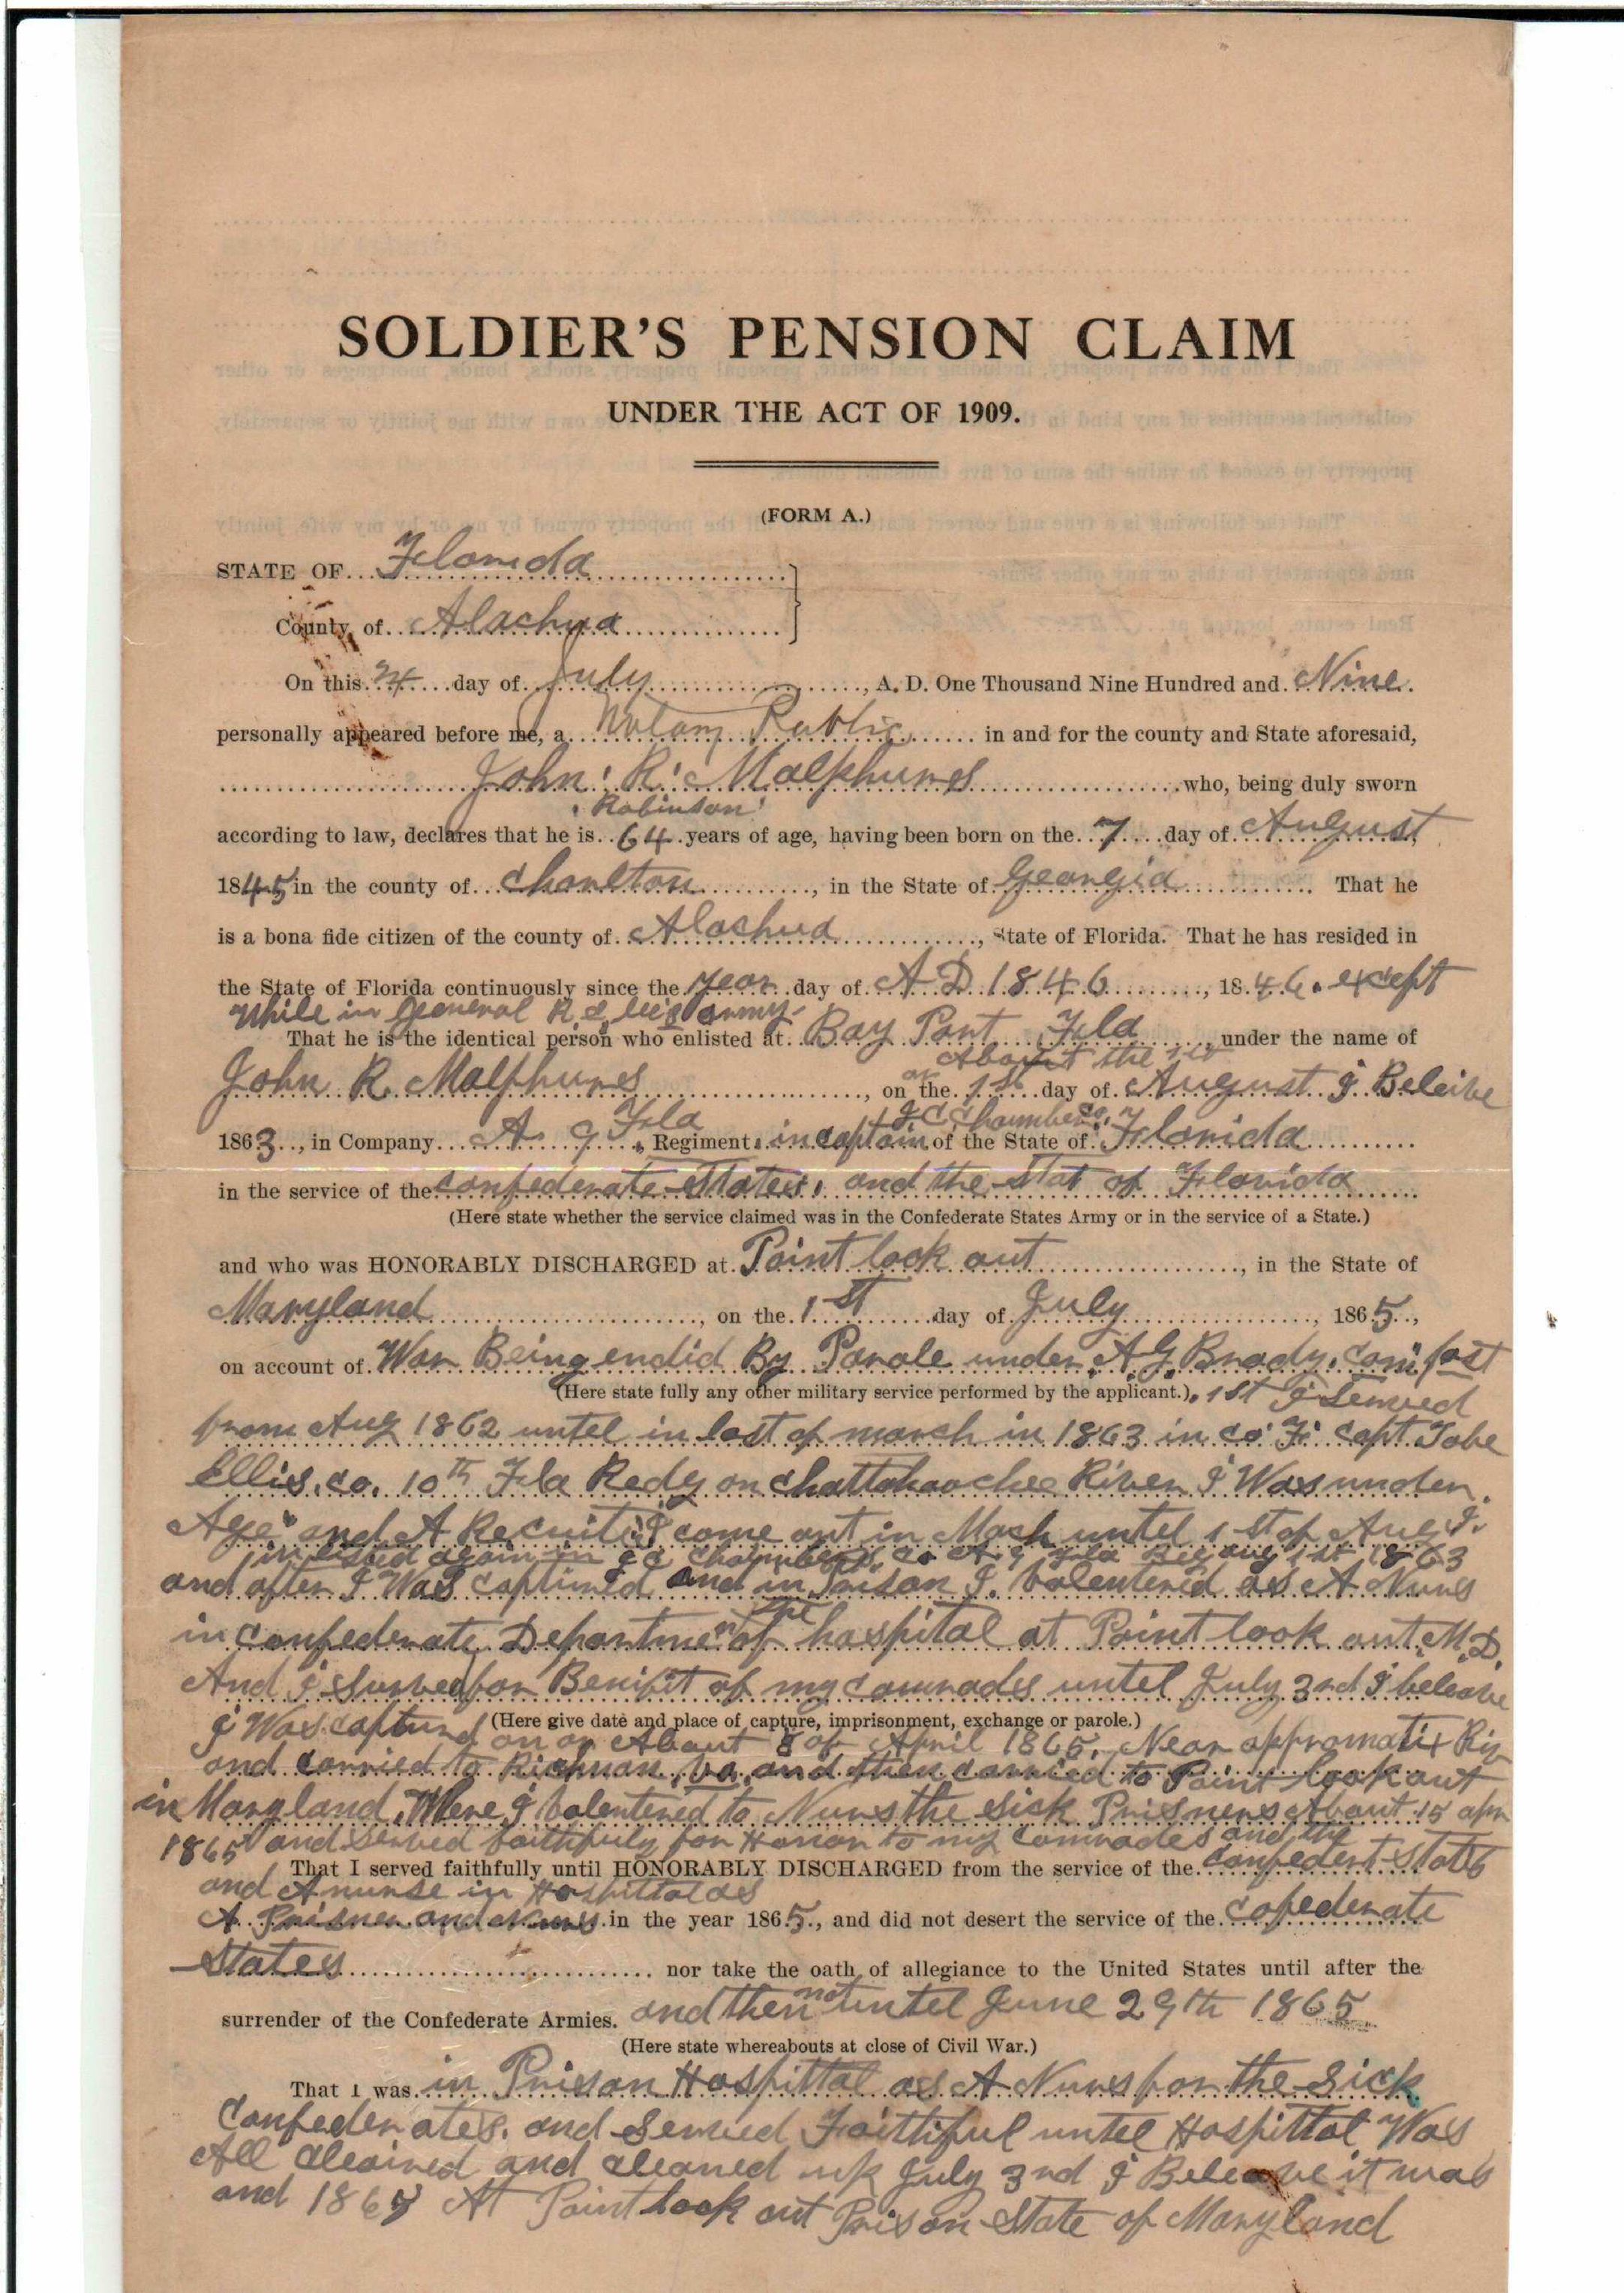 SOLDIER'S PENSION CLAIM
UNDER THE ACT OF 1909.
(FORM A.)
STATE OF Florida
County of Alachua
On this 4 day of July, A. D. One Thousand Nine Hundred and Nine
personally appeared before me, a Notary Public in and for the county and State aforesaid,
John R. Malphurs who, being duly sworn
Robinson
according to law, declares that he is 64 years of age, having been born on the 7 day of August
1845 in the county of Charlton, in the State of Georgia That he
is a bona fide citizen of the county of Alachua, State of Florida. That he has resided in
the State of Florida continuously since the year day of A D 1846, 1846. except
While in General R. E. lee's army.
That he is the identical person who enlisted at Bay Port Fla, under the name of
or About the 1st
John R. Malphurs, on the 1st day of August I Beleive
J C Chambers co.
1863, in Company A 9 Fla Regiment in captain of the State of Florida
in the service of the confederate States. and the Stat of Florida
(Here state whether the service claimed was in the Confederate States Army or in the service of a State.)
and who was HONORABLY DISCHARGED at Point look out, in the State of
Maryland, on the 1st day of July, 1865,
on account of War Being endid By Parole under A G Brady. com post
(Here state fully any other military service performed by the applicant.) 1st I Served
from Aug 1862 until in last of march in 1863 in co F. capt. Tobe
Ellis. co. 10th Fla Redg on Chattahoochee River I Was under
Age and A Recruit I come out in Mach until 1st of Aug I.
in listed again in J C Chambers. Co A 9 Fla Reg aug 1st 1863
and after I Was captured and in Prison I. volentered as A Nurs
in confederate Department of the hospital at Point look out. M.D.
And I Surved for Benifit of my comrades until July 3nd I beleave
(Here give date and place of capture, imprisonment, exchange or parole.)
I Was capturd on or About 8 of April 1865. Near appromatix Riv
and carried to Richman, va. and then carried to Point look out
in Maryland. Where I volentered to Nurs the sick Prisners About 15 apr
1865 and served faithfuly for Honor to my comrades and the
That I served faithfully until HONORABLY DISCHARGED from the service of the confedert States
and A nurse in Hospittal as
A Prisner and Nurs in the year 1865, and did not desert the service of the Cofederate
States nor take the oath of allegiance to the United States until after the
surrender of the Confederate Armies. and then not until June 29th 1865
(Here state whereabouts at close of Civil War.)
That I was in Prison Hospittal as A Nurs for the Sick
Confederates. and Served Faithful until Hospittal Was
All cleaired and cleaned up July 3nd I Beleave it was
and 1865 At Point look out Prison State of Maryland